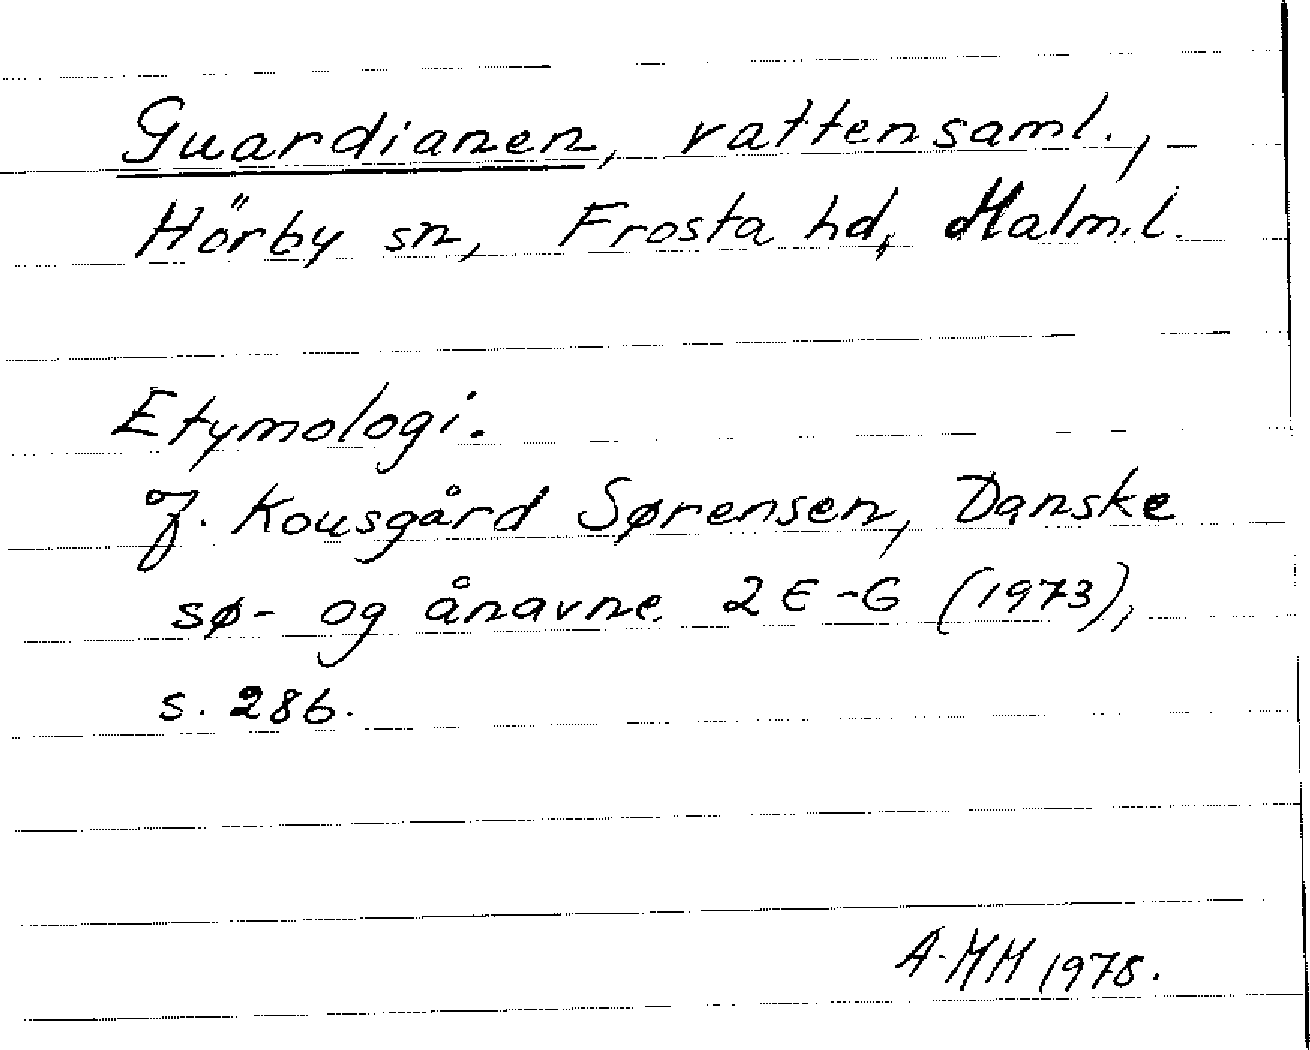 Guardianen, vattensaml.,
Hörby sn, Frosta hd, Malm.l.
Etymologi.
J. Kousgård Sørensen, Danske
sø- og ånavne 2 E-G (1973),
s. 286.
A-MM 1978.